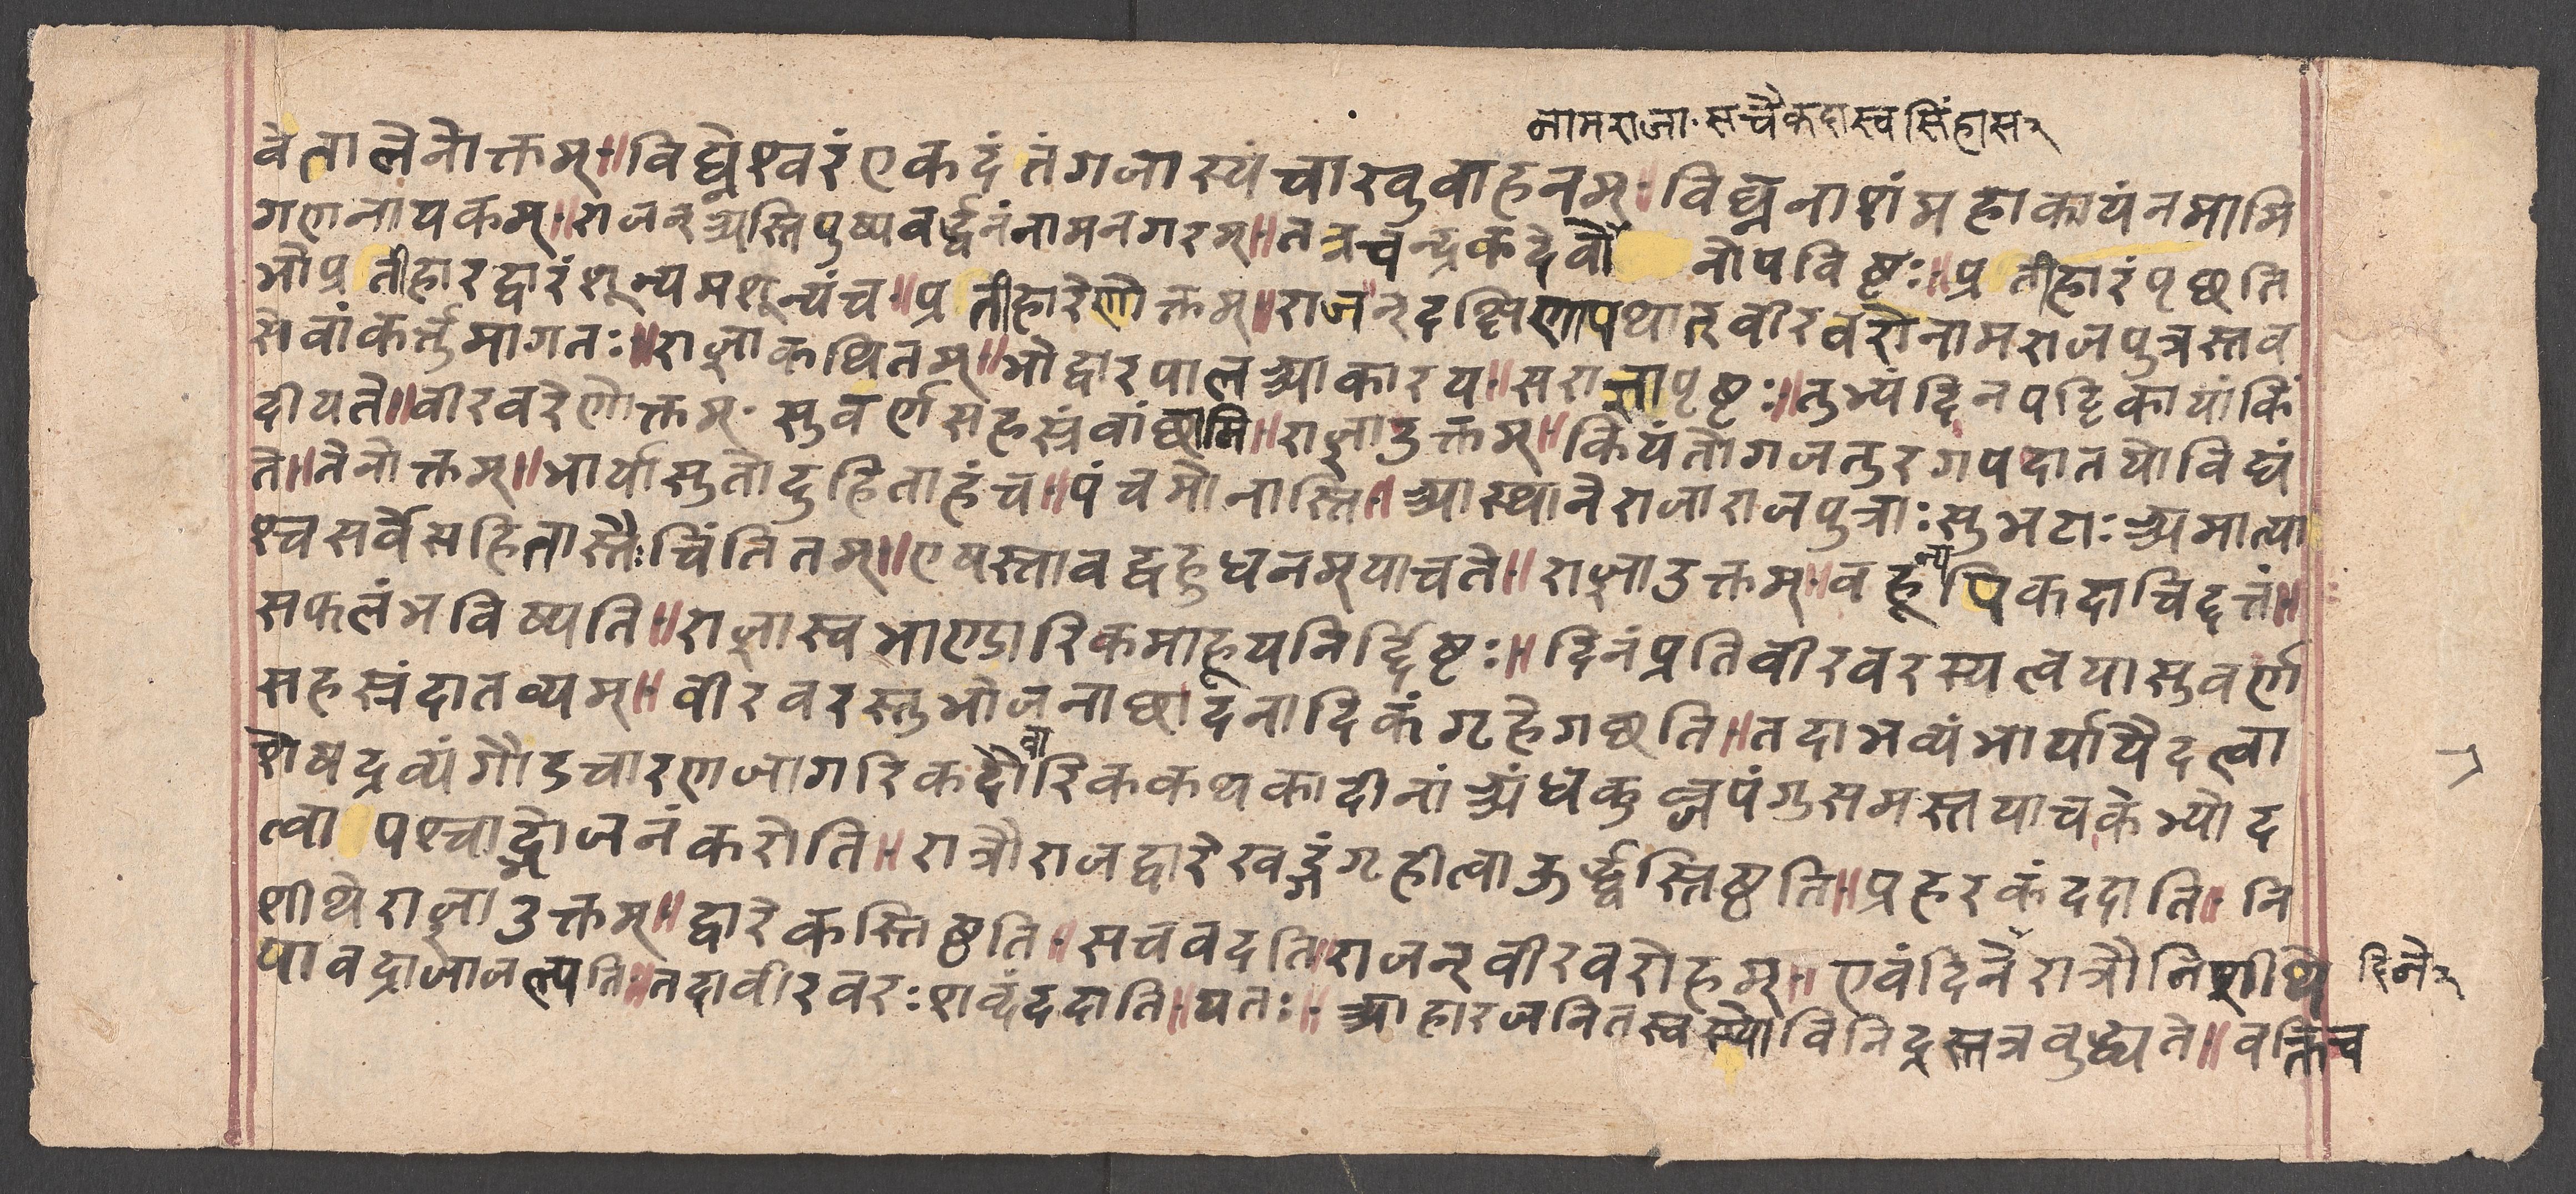 नामराजा॰सचैकदास्वसिंहास२
वेतालेनोक्तम्॥विघ्नेश्वरंएकदंतंगजास्यंचाखुवाहनम्॥विघ्ननाशंमहाकायंनमामि
गणनायकम्॥राजन्अस्तिपुष्पवर्द्धनंनामनगरम्॥तत्रचन्द्रकदेवो नोपविष्टः॥प्रतीहारंपृछति
भोप्रतीहारद्वारंशून्यमशून्यंच॥प्रतीहारेणोक्तम्॥राजन्दक्षिणापथात्वीरवरोनामराजपुत्रस्तव
सेवांकर्त्तुमागतः॥राज्ञाकथितम्॥भोद्वारपालआकारय॥सराज्ञापृष्टः॥तुभ्यंदिनपदिकायांकिं
दीयते॥वीरवरेणोक्तम्॰सुवर्णसहस्रंवांछामि॥राज्ञाउक्तम्॥कियंतोगजतुरगपदातयोविद्यं
ते॥तेनोक्तम्॥भार्यासुतोदुहिताहंच॥पंचमोनास्ति॥आस्थानेराजाराजपुत्राःसुभटाःअमात्या
श्चसर्वेसहितास्तैःचिंतितम्॥एषस्तावद्वहुधनम्याचते॥राज्ञाउक्तम्॥वहून्यपिकदाचिद्दत्तं॥
सफलंभविष्यति॥राज्ञास्वभाण्डारिकमाहूयनिर्द्दिष्टः॥दिनंप्रतिवीरवरस्यत्वयासुवर्ण
सहस्रंदातव्यम्॥वीरवरस्तुभोजनाछादनादिकंगृहेगछति॥तदाभव्यंभार्यायैदत्वा
शेषद्रव्यंगौडचारणजागरिकदौवारिककथकादीनांअंधकुब्जपंगुसमस्तयाचकेभ्योद
त्वा पश्चाद्भोजनंकरोति॥रात्रौराजद्वारेखड्गंगृहीत्वाऊर्द्ध्वस्तिष्ठति॥प्रहरकंददाति॥नि
शीथेराज्ञाउक्तम्॥द्वारेकस्तिष्ठति॥सचवदति॥राजन्वीरवरोहम्॥एवंदिनेरात्रौनिशीथे दिने२
यावद्राजाजल्पति॥तदावीरवरःशब्दंददाति॥यतः॥आहारजनितस्वस्थोविनिद्रस्तत्रवुद्ध्यते॥वक्तिच